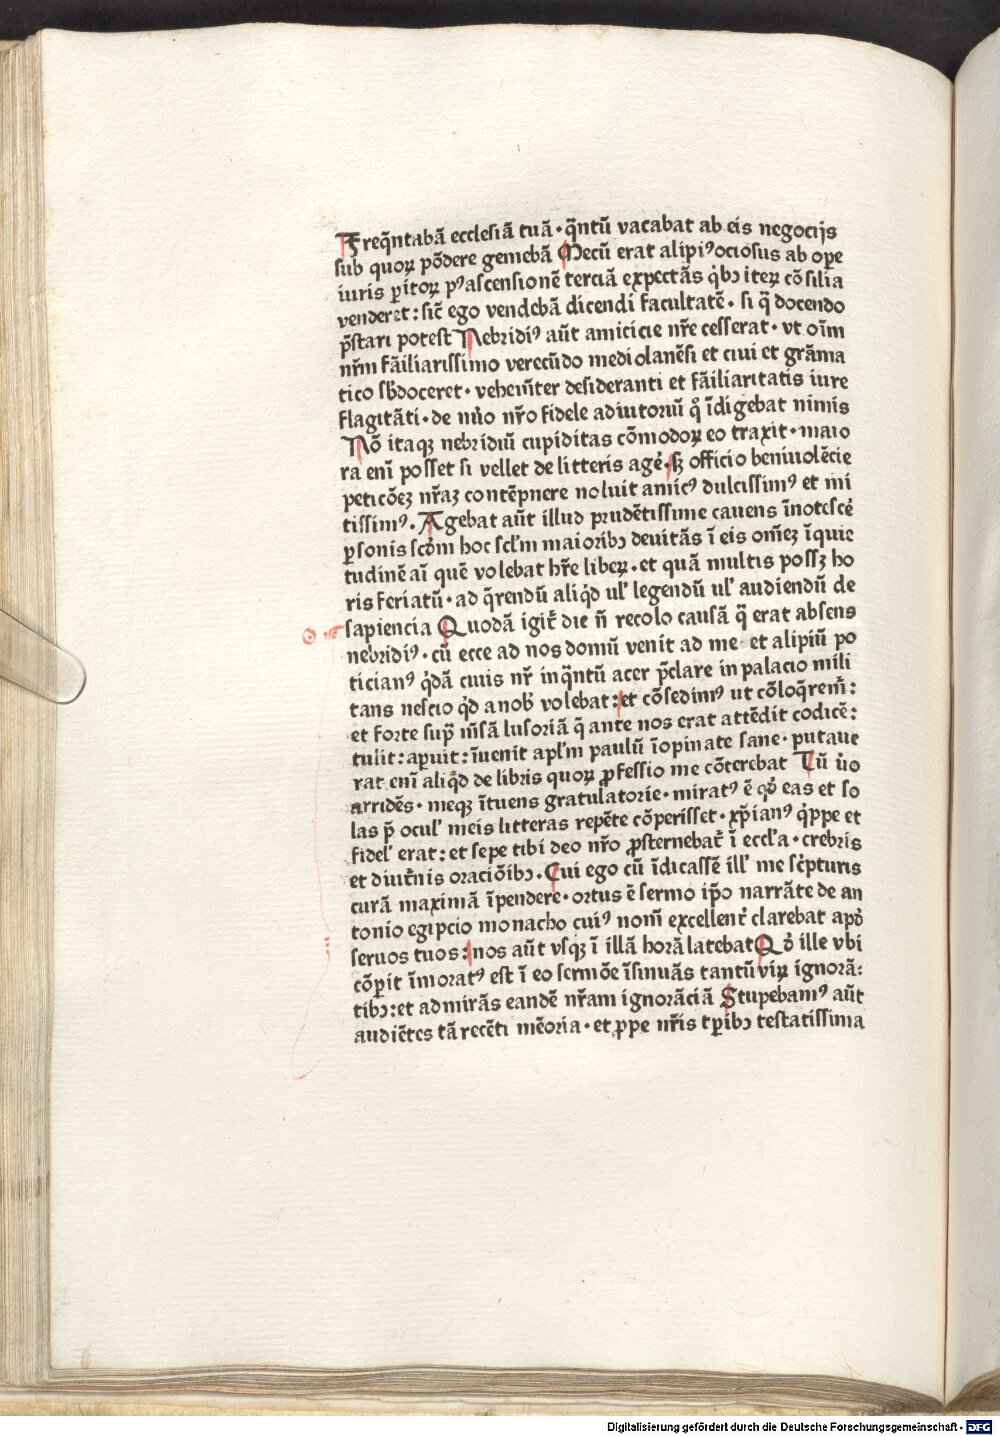 Freq̄ntabā ecclesiā tuā · q̄ntū vacabat ab eis negocijs
sub quoꝝ põdere gemebā Mecū erat alipiꝰ ociosus ab oꝑe
iuris ꝑitoꝝ pꝰ ascensionē terciā expectās qͥbꝫ iteꝝ cõsilia
venderet : sic̄ ego vendebā dicendi facultatē · si q̄ docendo
p̄stari potest Nebridiꝰ aūt amicicie nr̄e cesserat · vt oīm
nrm̄ fāiliarissimo verecūdo mediolanēsi et ciui et grāma
tico sb̄doceret · vehemt̄er desideranti et fāiliaritatis iure
flagitāti · de nu̇o nr̄o fidele adiutoriū qͦ īdigebat nimis
Nõ itaqꝫ nebridiū cupiditas cõmodoꝝ eo traxit · maio
ra eni posset si vellet de litteris agė · sꝫ officio beniuolēcie
peticõeꝫ nr̄aꝫ contēpnere noluit amicꝰ dulcissimꝰ et mi
tissimꝰ . Agebat aūt illud prudētissime cauens īnotescė
ꝑsonis scd̄m hoc sclm̄ maioribꝫ deuitās ī eis om̄eꝫ īquie
tudinē aī quē volebat hr̄e libeꝝ · et quā multis possꝫ ho
ris feriatū · ad q̄rendū aliqͥd ul' legendū ul' audiendū de
sapiencia Quodā igit̄ die n̄ recolo causā q̄ erat absens
nebridiꝰ · cū ecce ad nos domū venit ad me et alipiū po
ticianꝰ qͥdā ciuis nr̄ inq̄ntū acer p̄clare in palacio mili
tans nescio qͥd a nob̄ volebat : et cõsedimꝰ ut cõloq̄rem̄ :
et forte sup̄ m̄sā lusoriā q̄ ante nos erat attēdit codicē :
tulit : aperuit : īuenit aplm̄ paulū īopinate sane · putaue
rat eni aliqͥd de libris quoꝝ ꝓfessio me cõterebat Tū u̇o
arridēs · meqꝫ ītuens gratulatorie · miratꝰ ē qd̄ eas et so
las p̄ ocul' meis litteras repēte cõperisset · xp̄ianꝰ qͥppe et
fidel' erat : et sepe tibi deo nr̄o ꝓsternebat̄ ī eccl'a · crebris
et diut̄nis oraciõibꝫ . Cui ego cū īdicassē ill' me sc̄pturis
curā maximā īpendere · ortus ē sermo ip̄o narrāte de an
tonio egipcio monacho cuiꝰ nom̄ excellent̄ clarebat apd̄
seruos tuos : nos aūt vsqꝫ ī illā horā latebat Qd̄ ille vbi
cõꝑit īmoratꝰ est ī eo sermõe īsinuās tantū viꝝ ignorā:
tibꝫ : et admirās eandē nr̄am ignorāciā Stupebamꝰ aūt
audiētes tā recēti mēoria · et ꝓpe nr̄is tꝑibꝫ testatissima
Digitalisierung gefördert durch die Deutsche Forschungsgemeinschaft - DFG